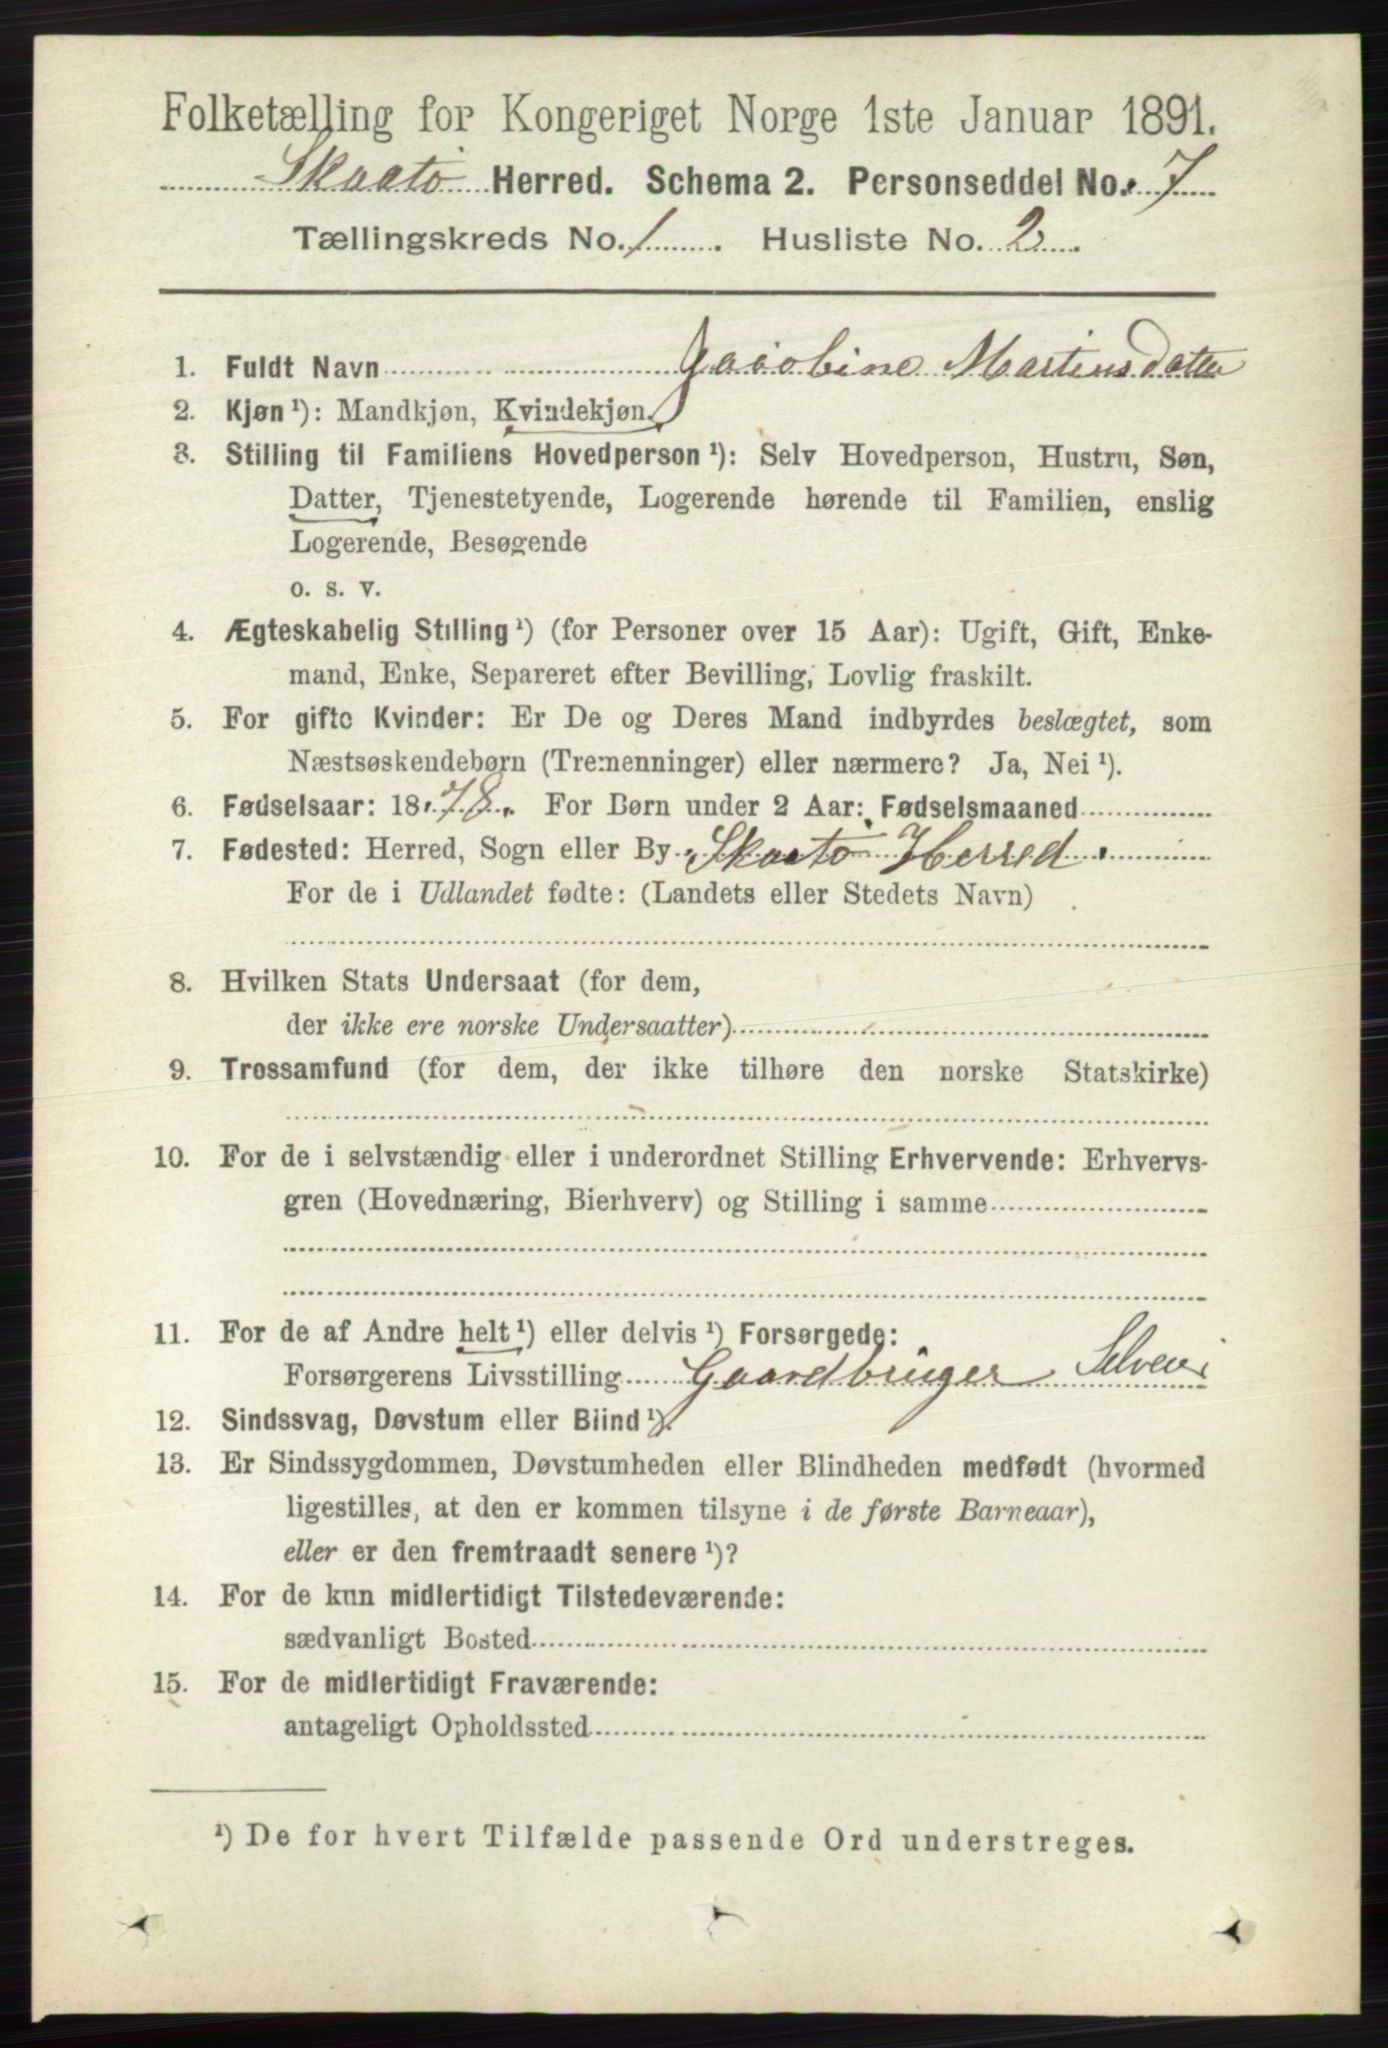 Folketælling for Kongeriget Norge 1ste Januar 1891.
Skaatø Herred. Schema 2. Personseddel No. 7
Tællingskreds No. 1. Husliste No. 2.
1. Fuldt Navn Jacobine Martinsdatter
2. Kjøn¹): Mandkjøn, Kvindekjøn.
3. Stilling til Familiens Hovedperson¹): Selv Hovedperson, Hustru, Søn,
Datter, Tjenestetyende, Logerende hørende til Familien, enslig
Logerende, Besøgende
o. s. v.
4. Ægteskabelig Stilling¹) (for Personer over 15 Aar): Ugift, Gift, Enke-
mand, Enke, Separeret efter Bevilling, Lovlig fraskilt.
5. For gifte Kvinder: Er De og Deres Mand indbyrdes beslægtet, som
Næstsøskendebørn (Tremenninger) eller nærmere? Ja, Nei¹).
6. Fødselsaar: 1878. For Børn under 2 Aar: Fødselsmaaned
7. Fødested: Herred, Sogn eller By Skaatø Herred.
For de i Udlandet fødte: (Landets eller Stedets Navn)
8. Hvilken Stats Undersaat (for dem,
der ikke ere norske Undersaatter)
9. Trossamfund (for dem, der ikke tilhøre den norske Statskirke)
10. For de i selvstændig eller i underordnet Stilling Erhvervende: Erhvervs-
gren (Hovednæring, Bierhverv) og Stilling i samme
11. For de af Andre helt¹) eller delvis¹) Forsørgede:
Forsørgerens Livsstilling Gaardbruger Selveier
12. Sindssvag, Døvstum eller Blind¹).
13. Er Sindssygdommen, Døvstumheden eller Blindheden medfødt (hvormed
ligestilles, at den er kommen tilsyne i de første Barneaar),
eller er den fremtraadt senere¹)?
14. For de kun midlertidigt Tilstedeværende:
sædvanligt Bosted
15. For de midlertidigt Fraværende:
antageligt Opholdssted
¹) De for hvert Tilfælde passende Ord understreges.